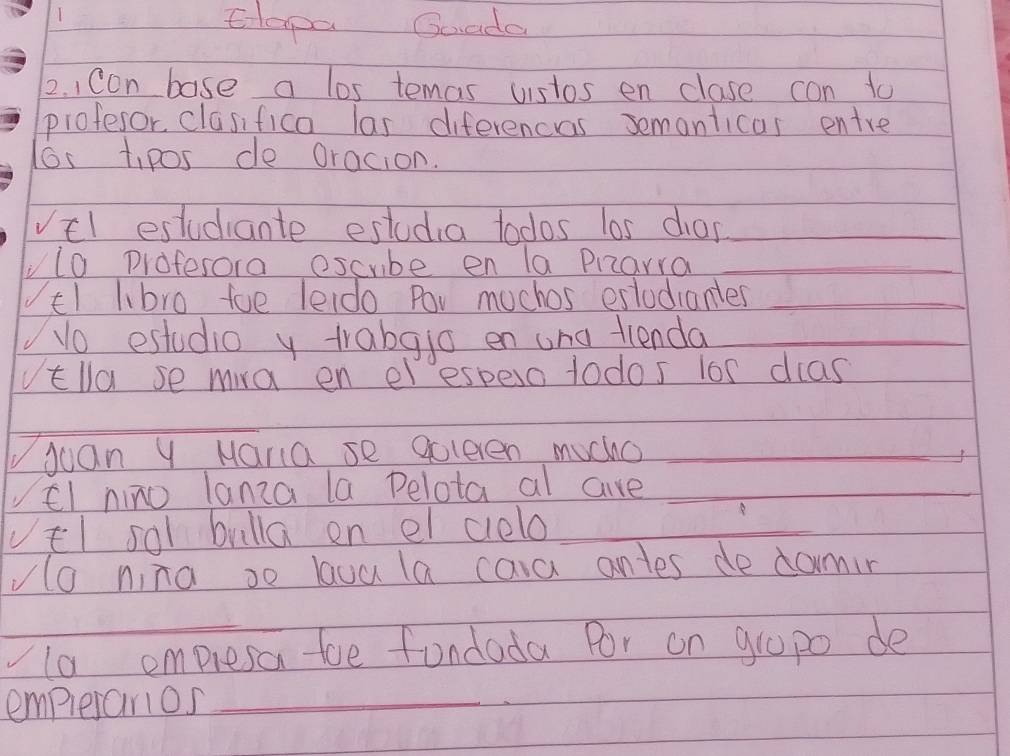 Etapa Grado
2.1 Con base a los temas vistos en clase con tu
profesor. clasifica las diferencias semanticas entre
los tipos de oracion.
√ El estudiante estudia todos los dias
√ La profesora escribe en la Pizarra
√ El libro fue leido Por muchos estudiantes
√ Yo estudio y trabajo en una tienda
√ Ella se mira en el espejo todos los dias
√ Juan y Maria se quieren mucho
√ El niño lanza la Pelota al aire
√ El sol brilla en el cielo
√ La niña se lava la cara antes de dormir
√ La empresa fue fundada Por un grupo de
empresarios